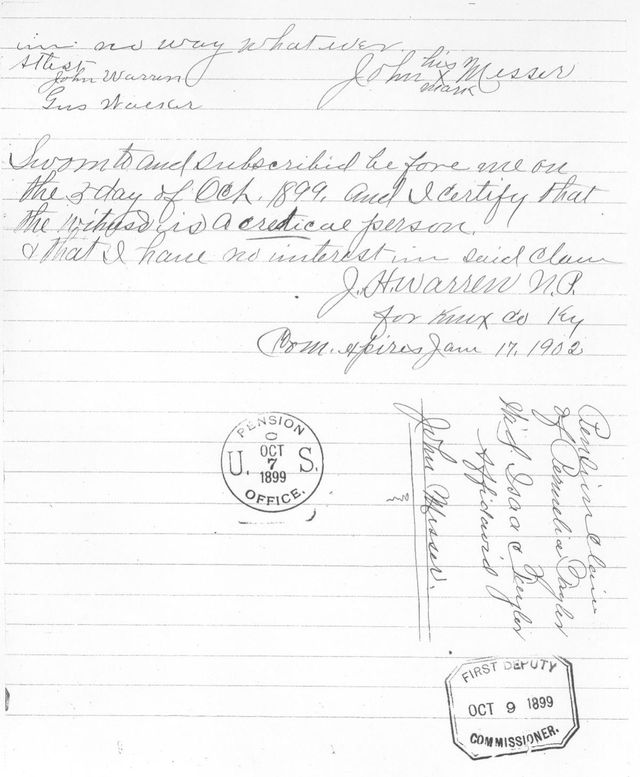 in no way whatever.
Attest
John Warren
Gus Wacker
his
John X Messer
mark
Swornto and subscribid before me on
the 3 day of Oct. 1899. and I certify that
the is a person.
& that I have no innterest in said claim
J. H. Warren N.P.
for Knux co Ky
Com. expires Jan 17, 1902
PENSION
U. S.
OCT
7
1899
OFFICE.
Pension Claim
of Permelia Taylor
Wid. Isaac Taylor
Affidavid of
John Messer.
FIRST DEPUTY
OCT 9 1899
COMMISSIONER.